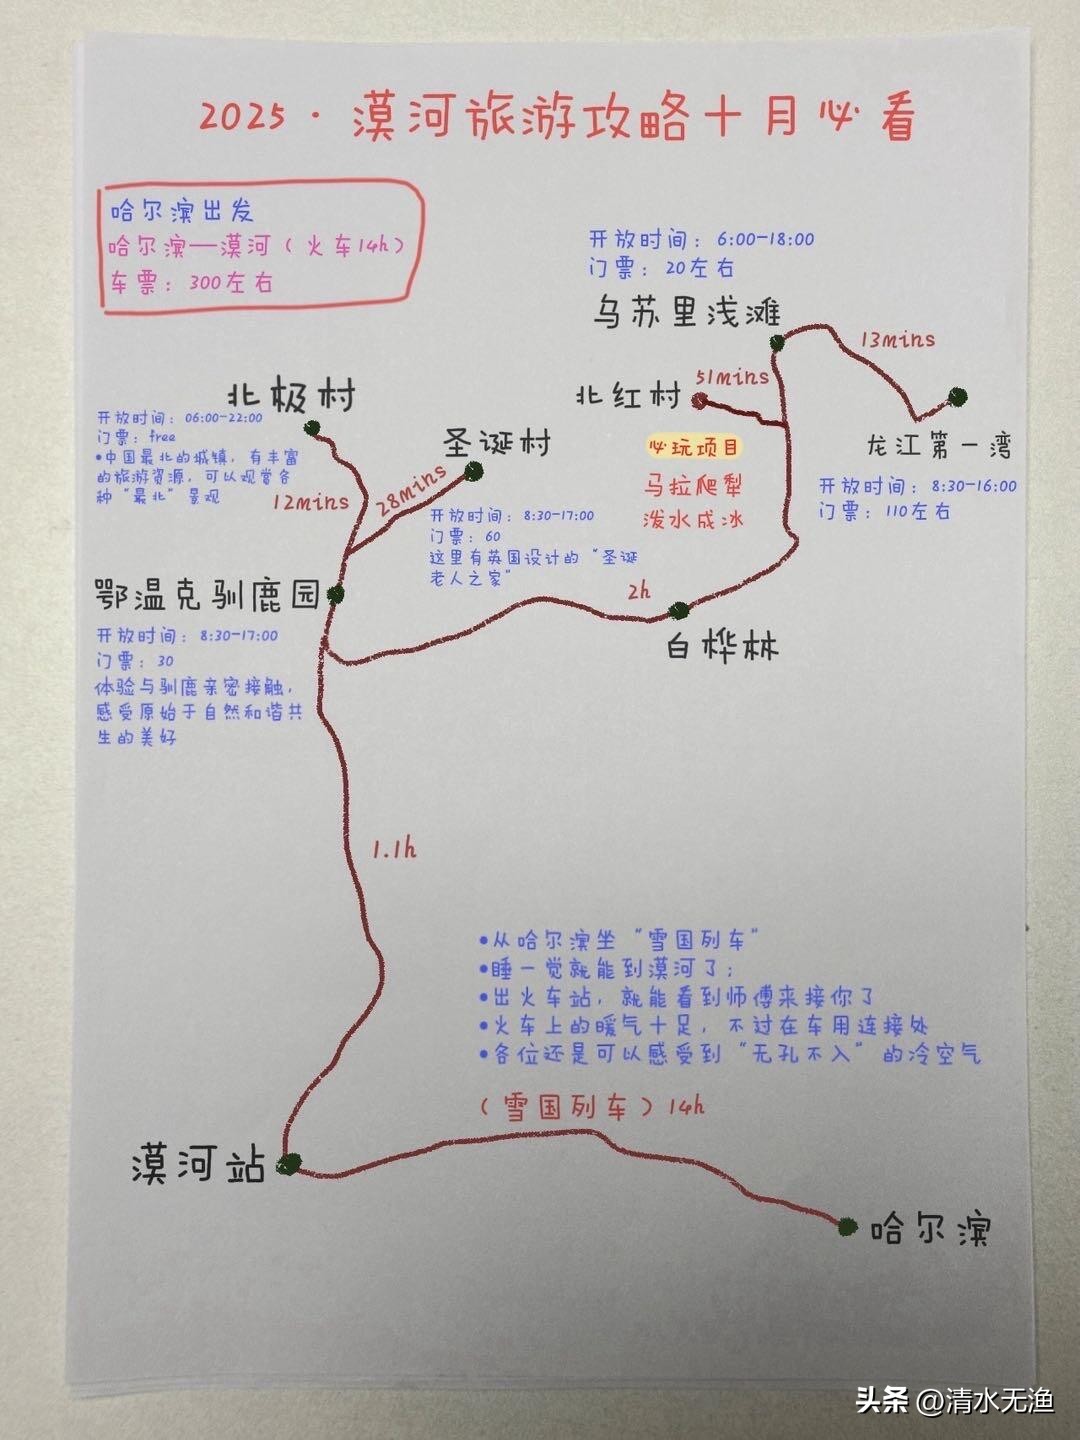 2025·漠河旅游攻略十月必看
哈尔滨出发
哈尔滨—漠河（火车14h）
车票：300左右
开放时间：6:00-18:00
门票：20左右
乌苏里浅滩
13mins
51mins
北红村
龙江第一湾
开放时间：8:30-16:00
门票：110左右
必玩项目
马拉爬犁
泼水成冰
北极村
开放时间：06:00-22:00
门票：free
•中国最北的城镇，有丰富
的旅游资源，可以观赏各
种“最北”景观
12mins
圣诞村
28mins
开放时间：8:30-17:00
门票：60
这里有英国设计的“圣诞
老人之家”
鄂温克驯鹿园
开放时间：8:30-17:00
门票：30
体验与驯鹿亲密接触，
感受原始于自然和谐共
生的美好
2h
白桦林
1.1h
•从哈尔滨坐“雪国列车”
•睡一觉就能到漠河了；
•出火车站，就能看到师傅来接你了
•火车上的暖气十足，不过在车用连接处
•各位还是可以感受到“无孔不入”的冷空气
（雪国列车）14h
漠河站
哈尔滨
头条 @清水无渔